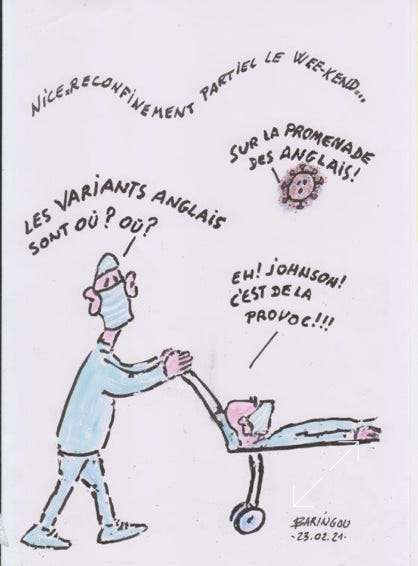 NICE.RECONFINEMENT PARTIEL LE WEE-KEND...
SUR LA PROMENADE
DES ANGLAIS!
LES VARIANTS ANGLAIS
SONT OÙ? OÙ?
EH! JOHNSON!
C'EST DE LA
PROVOC!!!
BARINGOU
-23.02.21-